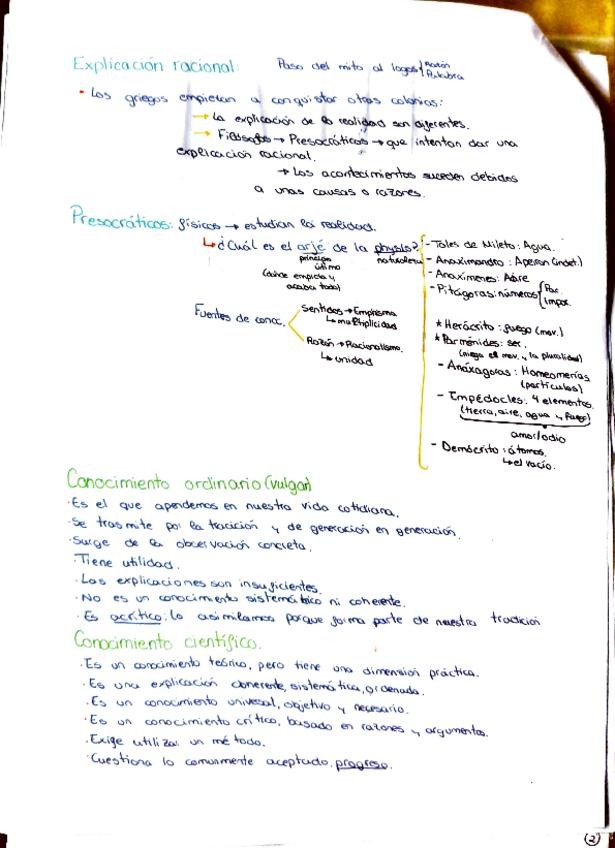 Explicación racional: Paso del mito al logos { Razón
Palabra
• Los griegos empiezan a conquistar otras colonias:
→ La explicación de la realidad son diferentes.
→ Filósofos → Presocráticos → que intentan dar una
explicación racional.
→ Los acontecimientos suceden debidos
a unas causas o razones.
Presocráticos: físicos → estudian la realidad.
↳ ¿Cuál es el arjé de la physis?
principio
último
(donde empieza y
acaba todo)
naturaleza
- Tales de Mileto: Agua.
- Anaximandro: Apeiron (indet.)
- Anaxímenes: Aire
- Pitágoras: números { Par.
Impar.
* Heráclito: fuego (mov.)
* Parménides: ser.
(niega el mov. y la pluralidad)
- Anáxagoras: Homeomerías
(partículas)
- Empédocles: 4 elementos.
(tierra, aire, agua y fuego)
amor/odio
- Demócrito: átomos.
↳ el vacío.
Fuentes de conoc.
Sentidos → Empirismo
↳ multiplicidad
Razón → Racionalismo.
↳ unidad
Conocimiento ordinario (vulgar)
· Es el que apendemos en nuestra vida cotidiana.
· Se trasmite por la tradición y de generación en generación.
· Surge de la observación concreta.
· Tiene utilidad.
· Las explicaciones son insuficientes.
· No es un conocimiento sistemático ni coherente.
· Es acrítico: lo asimilamos porque forma parte de nuestra tradición
Conocimiento científico.
· Es un conocimiento teórico, pero tiene una dimensión práctica.
· Es una explicación coherente, sistemática, ordenada.
· Es un conocimiento universal, objetivo y necesario.
· Es un conocimiento crítico, basado en razones y argumentos.
· Exige utilizar un método.
· Cuestiona lo comunmente aceptado. progreso.
2